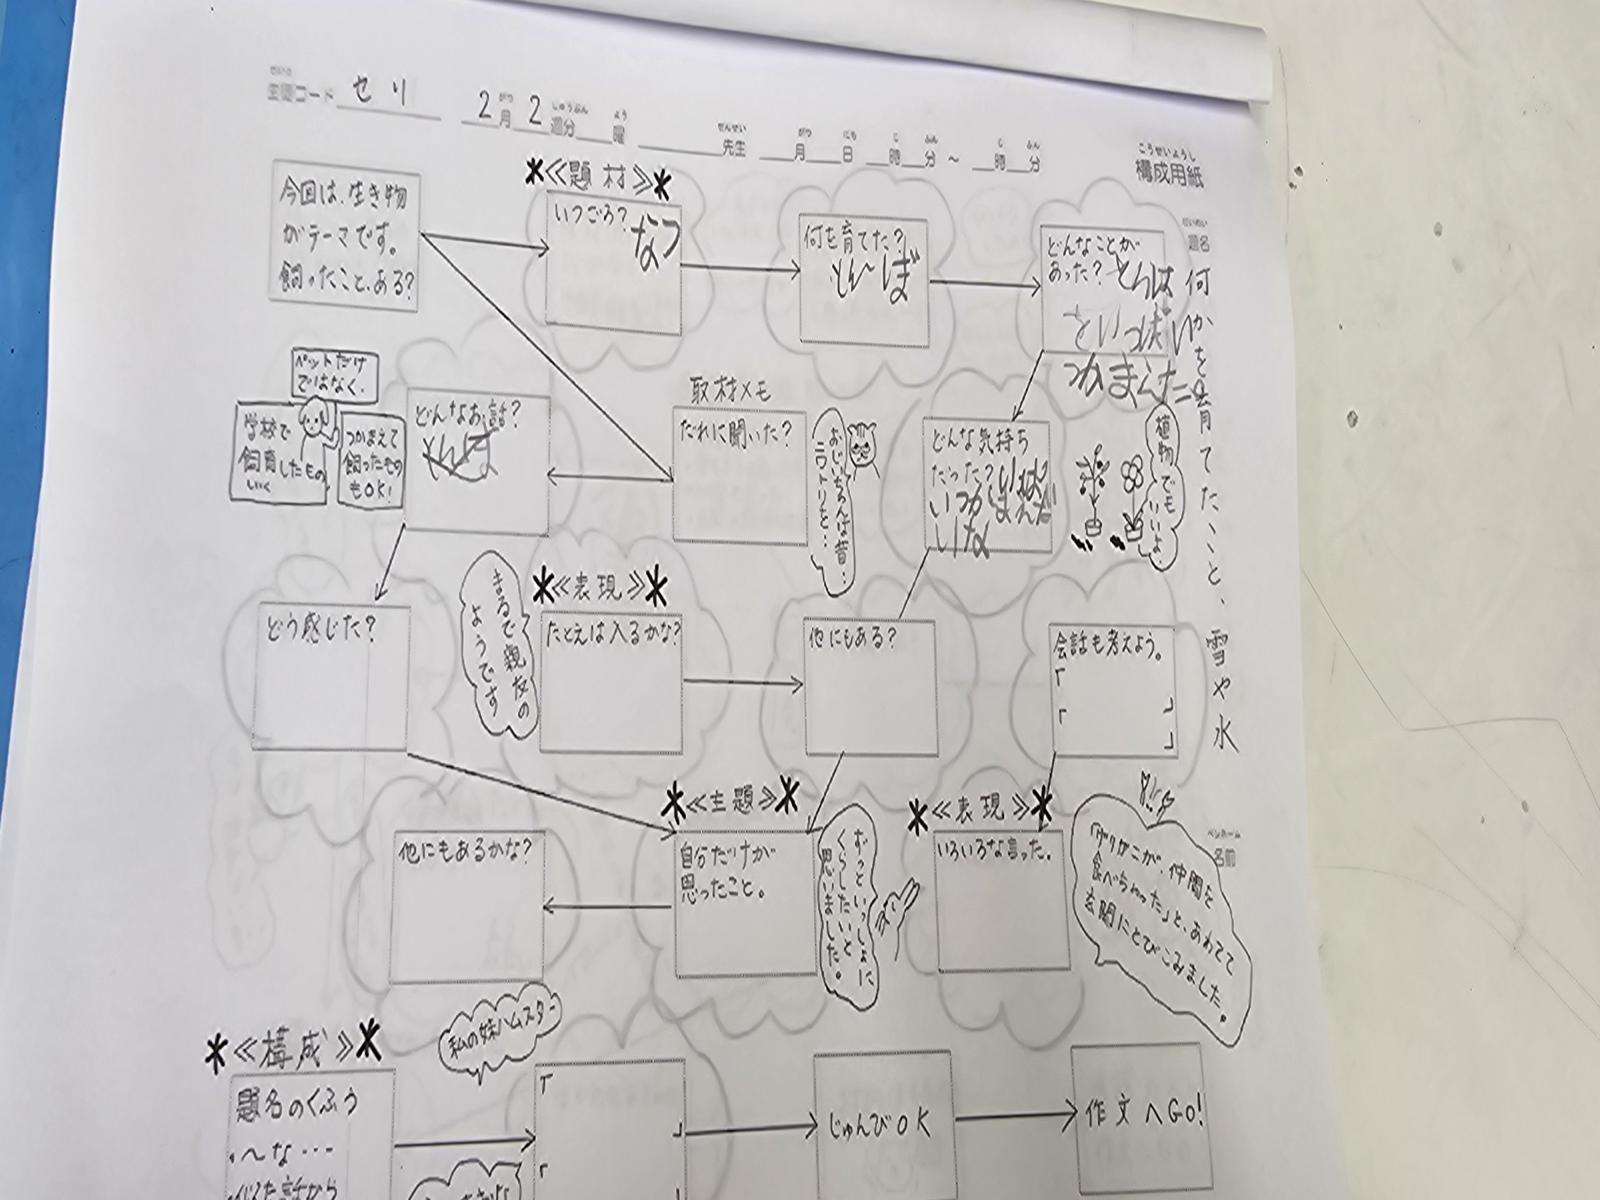 生徒コード セリ 2月 2週分 曜 先生 月 日 時 分 ~ 時 分
構成用紙
題名 何かを育てたこと、雪や氷
今回は、生き物
がテーマです。
飼ったこと、ある?
≪題材≫
いつごろ?
なつ
何を育てた?
とんぼ
どんなことが
あった?
といっぱい
つかまえた
ペットだけ
ではなく、
学校で
飼育したもの
つかまえて
飼ったもの
もOK!
どんなお話?
取材メモ
だれに聞いた?
おじいちゃんは昔…
ニワトリを…
どんな気持ち
だった?
植物でも
いいよ。
どう感じた?
まるで親友の
ようです
≪表現≫
たとえは入るかな?
他にもある?
会話も考えよう。
「
」
「
」
他にもあるかな?
≪主題≫
自分だけが
思ったこと。
ずっといっしょに
くらしたいと
思いました。
≪表現≫
いろいろな言った。
ペンネーム
名前
「ザリガニが、仲間を
食べちゃった」と、あわてて
玄関にとびこみました。
≪構成≫
題名のくふう
・〜な…
似た話から
私の妹ハムスター
「
」
「
じゅんびOK
作文へGO!